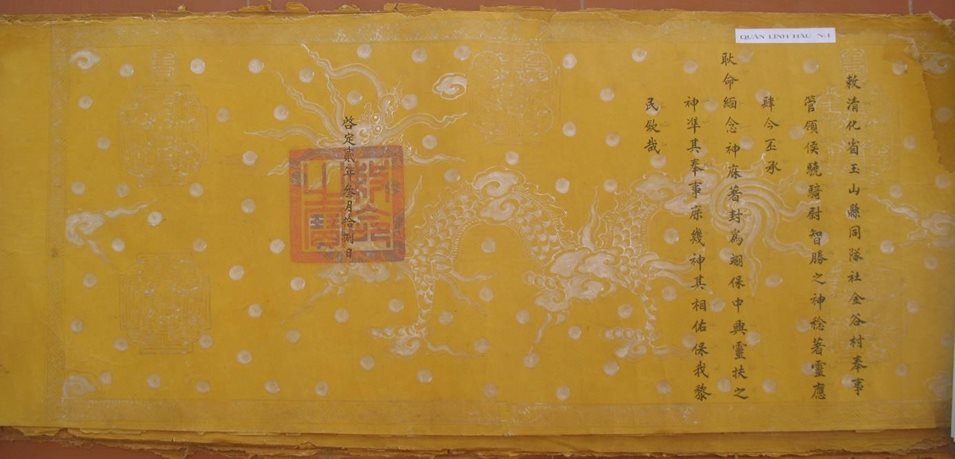 QUẢN LĨNH HẦU N:1
敕清化省玉山縣同隊社金谷村奉事
管領侯驍騎尉智勝之神稔著靈應
肆今丕承
耿命緬念神庥著封為翊保中興靈扶之
神準其奉事庶幾神其相佑保我黎
民欽哉
啓定貳年叁月拾捌日
敕命之寶